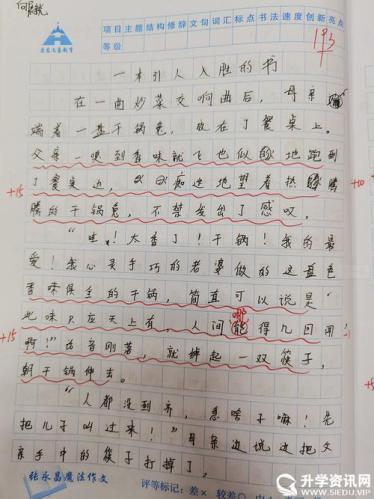 项目主题结构修辞文句词汇标点书法速度创新亮点
等级
一本引人入胜的书
在一曲炒菜交响曲后，母亲
端着一盘干锅兔，放在了餐桌上。
父亲一嗅到香味就飞也似的地跑到
了餐桌边，白痴边地望着热腾
腾的干锅兔，不禁发出了感叹。
+15
+10
“哇！太香了！干锅！我的最
爱！我心灵手巧的老婆做的这盘色
香味俱全的干锅，简直可以说是“
此味只应天上有，人间能得几回用！
哪
啊！”话音刚落，就绰起一双筷子，
+15
+15
朝干锅伸去。
“人都没到齐，急啥子嘛！先
把儿子叫过来！”母亲边说边把父
亲手中的筷子打掉了。
张永昌魔法作文
评等标记：差× 较差○
升学资讯网
WWW.SIEDU.VIP